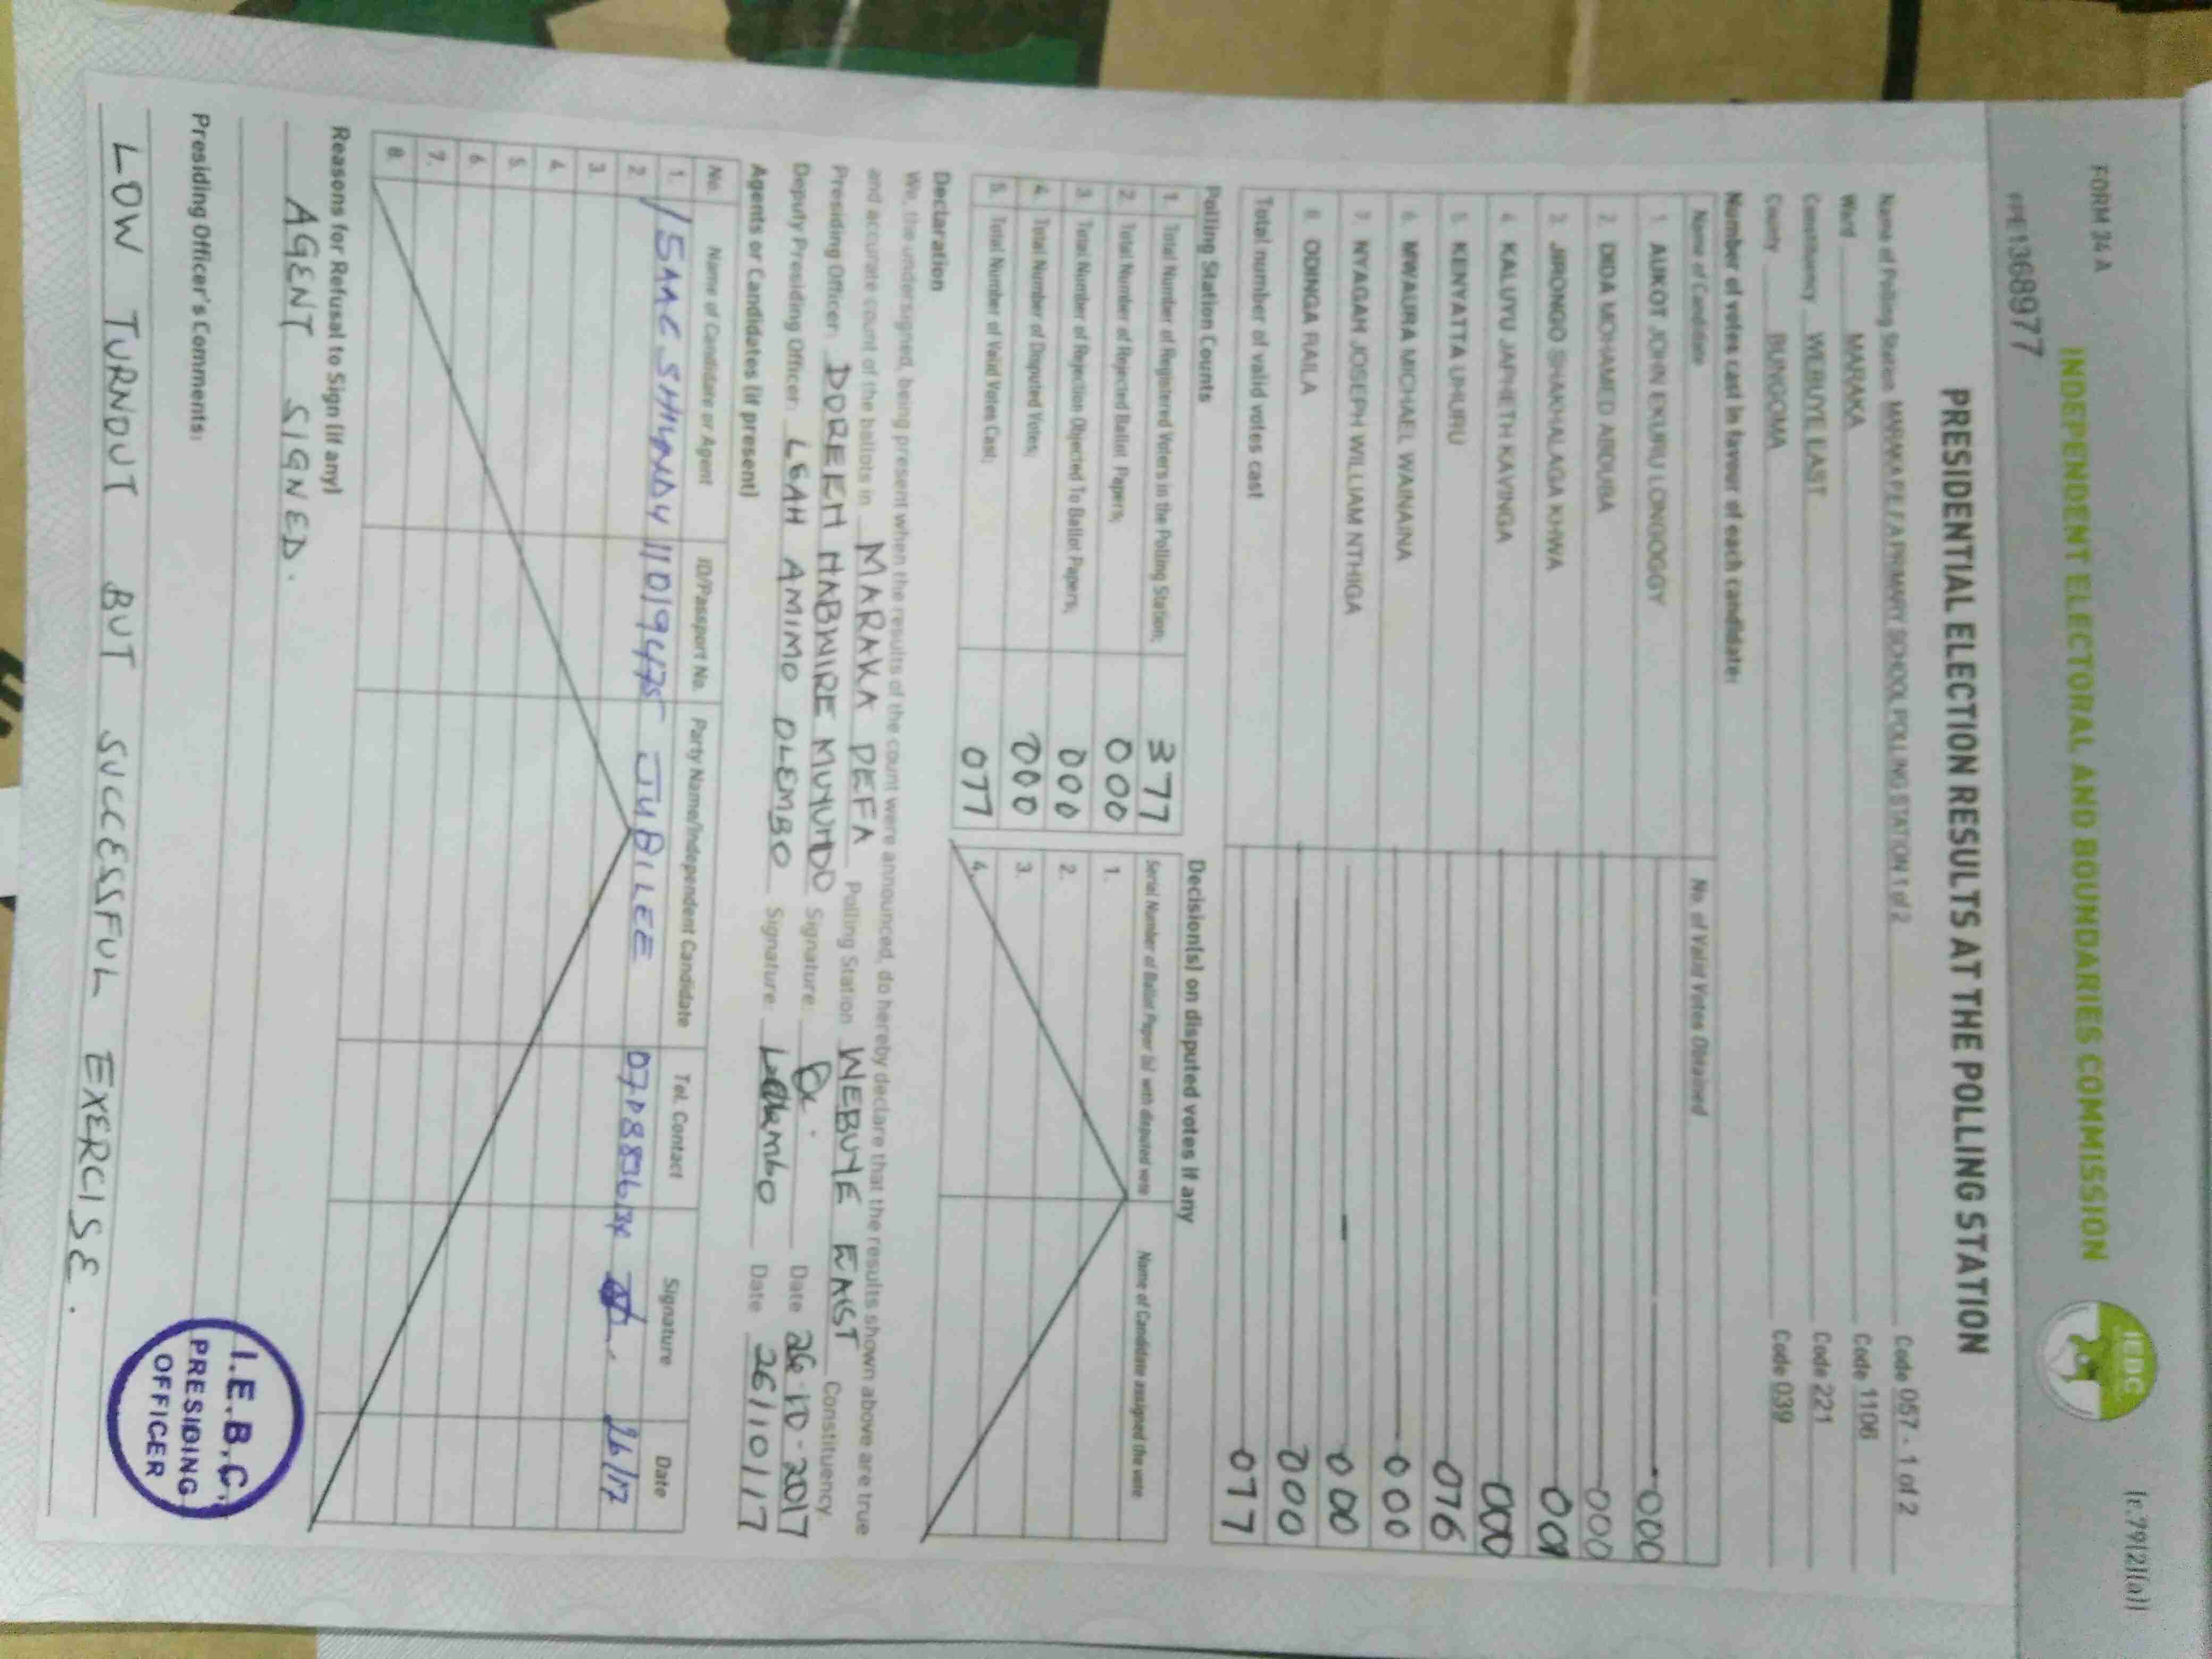 FORM 34 A
INDEPENDENT ELECTORAL AND BOUNDARIES COMMISSION
IEBC
[r.79(2)(a)]
PRE1368977
PRESIDENTIAL ELECTION RESULTS AT THE POLLING STATION
Name of Polling Station MARAKA P.E.F.A PRIMARY SCHOOL POLLING STATION 1 of 2 Code 057 - 1 of 2
Ward MARAKA Code 1106
Constituency WEBUYE EAST Code 221
County BUNGOMA Code 039
Number of votes cast in favour of each candidate:
Name of Candidate No. of Valid Votes Obtained
1. AUKOT JOHN EKURU LONGOGGY 000
2. DIDA MOHAMED ABDUBA 000
3. JIRONGO SHAKHALAGA KHWA
4. KALUYU JAPHETH KAVINGA 000
5. KENYATTA UHURU 076
6. MWAURA MICHAEL WAINAINA 000
7. NYAGAH JOSEPH WILLIAM NTHIGA 000
8. ODINGA RAILA 000
Total number of valid votes cast 077
Polling Station Counts
1. Total Number of Registered Voters in the Polling Station; 377
2. Total Number of Rejected Ballot Papers; 000
3. Total Number of Rejection Objected To Ballot Papers; 000
4. Total Number of Disputed Votes; 000
5. Total Number of Valid Votes Cast; 077
Decision(s) on disputed votes if any
Serial Number of Ballot Paper (s) with disputed vote Name of Candidate assigned the vote
1.
2.
3.
4.
Declaration
We, the undersigned, being present when the results of the count were announced, do hereby declare that the results shown above are true
and accurate count of the ballots in MARAKA PEFA Polling Station WEBUYE EAST Constituency
Presiding Officer: DOREEN NABWIRE MUYUNDO Signature: Date 26-10-2017
Deputy Presiding Officer: LEAH AMIMO OLEMBO Signature: Date 26/10/17
Agents or Candidates (if present)
No. Name of Candidate or Agent ID/Passport No. Party Name/Independent Candidate Tel. Contact Signature Date
1. ISAAC JUBILEE 26/17
2.
3.
4.
5.
6.
7.
8.
Reasons for Refusal to Sign (if any)
AGENT SIGNED.
Presiding Officer's Comments:
LOW TURNOUT BUT SUCCESSFUL EXERCISE.
I.E.B.C.
PRESIDING
OFFICER